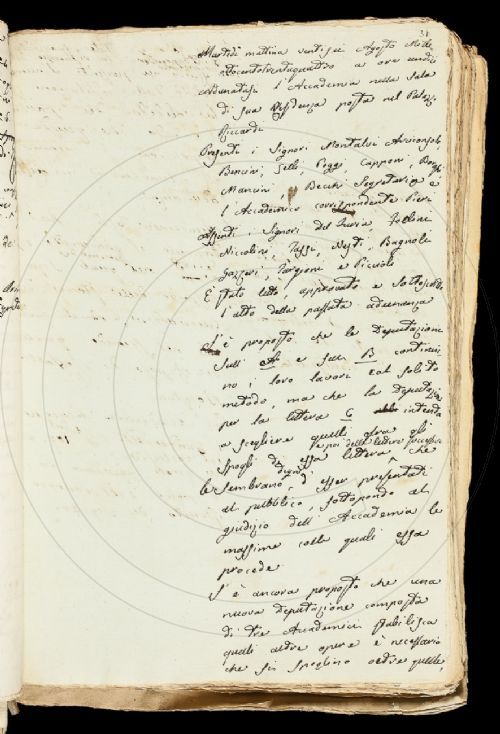 31
Martedì mattina ventisei Agosto Mille
ottocentotrentaquattro a ore undici
adunatasi l'Accademia nella Sala
di sua Residenza posta nel Palazzo
Riccardi
Presenti i Signori Montalvi Arcicons.
Bencini, Gelli, Poggi, Capponi,
Mancini, Becchi Segretario e
l'Accademico corrispondente Pieri
Assenti i Signori del Furia, Follini
Niccolini, Nesti, Bagnoli
Gazzeri, Targioni e Piccioli
È stato letto, approvato e sottoscritto
l'atto della passata adunanza
S'è proposto che le Deputazione
sull' A e sull B continui
no i loro lavori col solito
metodo, ma che la Deputazio
per la lettera C intenda
a scegliere quelli fra gli
e poi delle lettere successive
spogli di essa lettera, che
le sembrano degni d'esser presentati
al pubblico, sottoponendo al
giudizio dell'Accademia le
massime colle quali essa
procede
S'è ancora proposto che una
nuova Deputazione composta
di tre Accademici stabilisca
quali altre opere è necessario
che si spoglino oltre quelle,